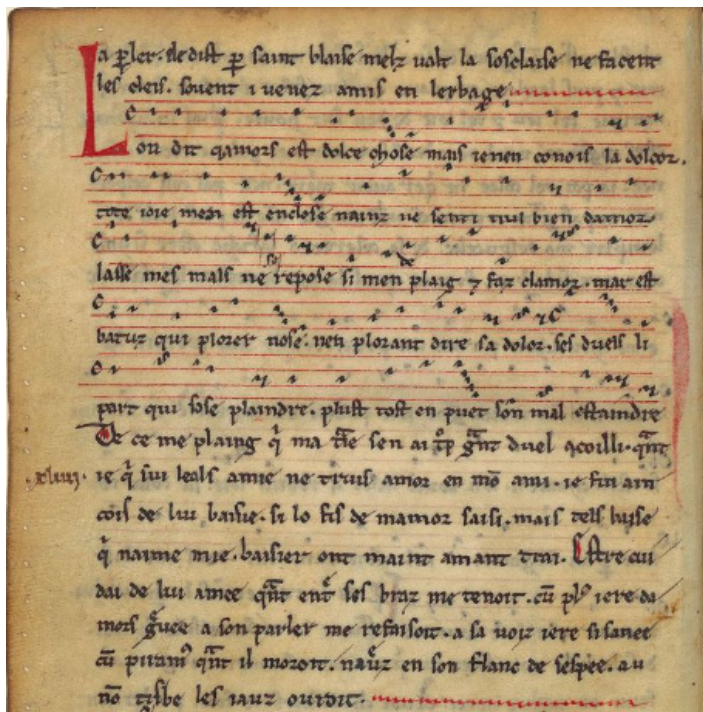 La pler. de dist p saint blaise melz ualt la sosclaise ne facent
les cleis. souent i uenez amis en lerbage
Lon dit qamors est dolce chose mais ienen conois la dolcor.
tote ioie men est enclose nainz ne senti nul bien damor
lasse mes mals ne repose si men plaig 7 faz clamor. mar est
batuz qui plorer nose. nen plorant dire sa dolor. ses duels li
part qui sose plaindre. plust tost en puet son mal estaindre
De ce me plaing q ma sen ai gnt duel acoilli. qnt
xliiij. ie q sui leals amie ne truis amor en mō ami. ie fui ain
cois de lui baisie. si lo fis de mamor saisi. mais tels baise
q naime mie. baisier ont maint amant trai. Estre cui
dai de lui amee qnt ent ses braz me tenoit. cū pl iere da
mors guee a son parler me refaisoit. a sa uoiz iere si sanee
cū piram qnt il moroit. naurz en son flanc de sespee. au
nō tisbe les iauz ourdit.